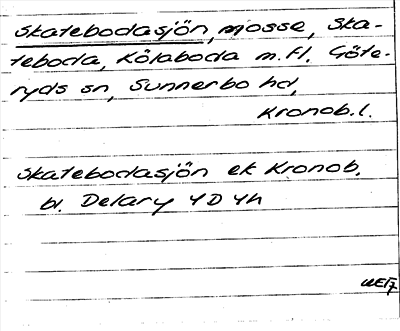 Skatebodasjön, mosse, Ska-
teboda, Kölaboda m.fl. Göte-
ryds sn, Sunnerbo hd,
Kronob. l.
Skatebodasjön ek Kronob.
bl. Delary 4D 4h